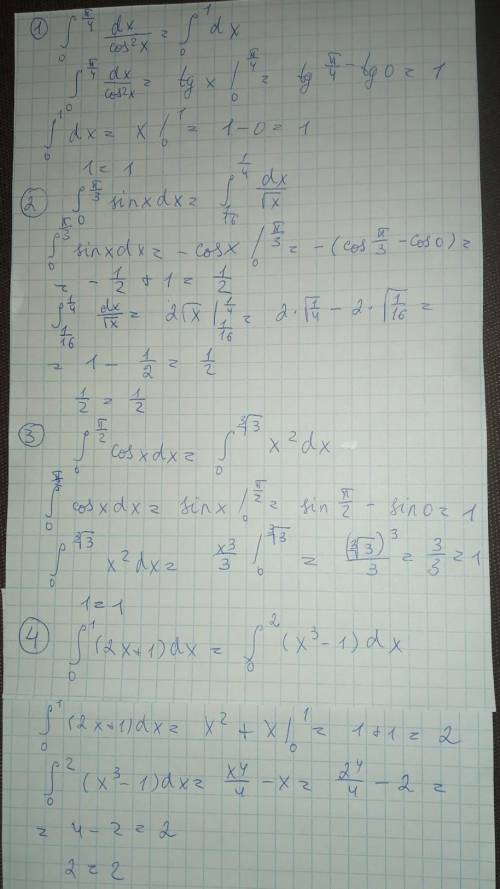 ① ∫₀^{π/4} dx/cos²x = ∫₀¹ dx
∫₀^{π/4} dx/cos²x = tg x |₀^{π/4} = tg π/4 - tg 0 = 1
∫₀¹ dx = x |₀¹ = 1 - 0 = 1
1 = 1
② ∫₀^{π/3} sinxdx = ∫_{1/16}^{1/4} dx/√x
∫₀^{π/3} sinxdx = -cosx |₀^{π/3} = -(cos π/3 - cos0) =
= -1/2 + 1 = 1/2
∫_{1/16}^{1/4} dx/√x = 2√x |_{1/16}^{1/4} = 2·√(1/4) - 2·√(1/16) =
= 1 - 1/2 = 1/2
1/2 = 1/2
③ ∫₀^{π/2} cosxdx = ∫₀^{∛3} x²dx
∫₀^{π/2} cosxdx = sinx |₀^{π/2} = sin π/2 - sin0 = 1
∫₀^{∛3} x²dx = x³/3 |₀^{∛3} = (∛3)³/3 = 3/3 = 1
1 = 1
④ ∫₀¹ (2x+1)dx = ∫₀² (x³-1)dx
∫₀¹ (2x+1)dx = x² + x |₀¹ = 1 + 1 = 2
∫₀² (x³-1)dx = x⁴/4 - x = 2⁴/4 - 2 =
= 4 - 2 = 2
2 = 2